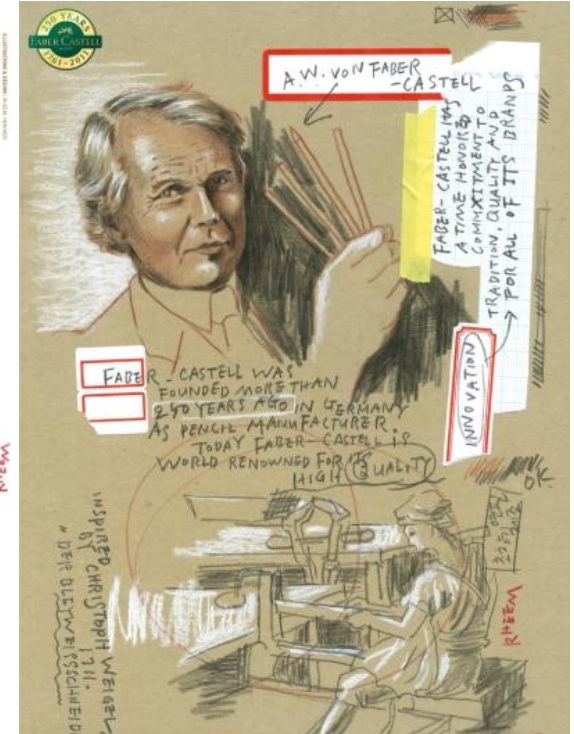 250 YEARS
FABER-CASTELL
1761-2011
A.W. VON FABER
-CASTELL
FABER-CASTELL HAS
A TIME HONORED
COMMITMENT TO
TRADITION, QUALITY AND
FOR ALL OF ITS BRANDS
INNOVATION
FABER-CASTELL WAS
FOUNDED MORE THAN
250 YEARS AGO IN GERMANY
AS PENCIL MANUFACTURER
TODAY FABER-CASTELL IS
WORLD RENOWNED FOR ITS
HIGH QUALITY
OK.
RHEEM
INSPIRED CHRISTOPH WEIGEL
BY
1711.
"DER BLEIWEISSSCHNEID
RHEEM